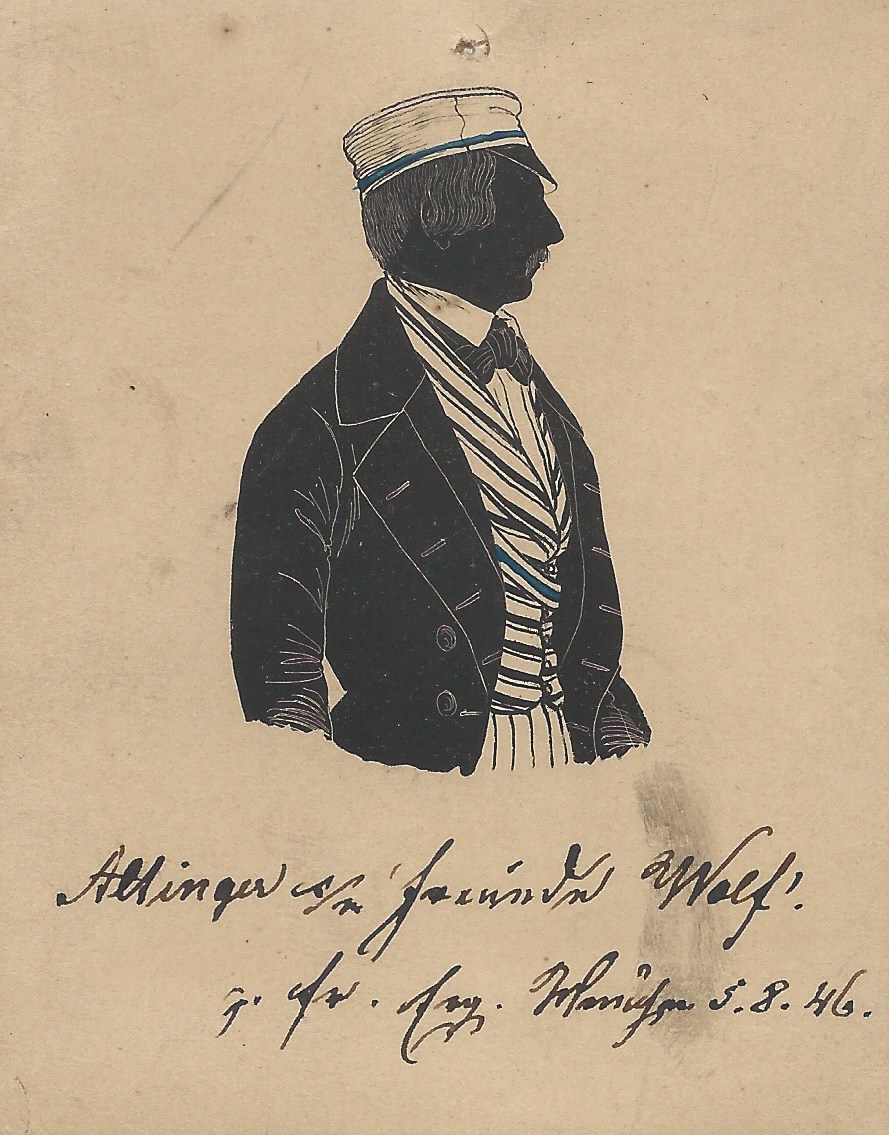 Altinger s/n Freunde Wolf!
z. fr. Erg. München 5.8.46.